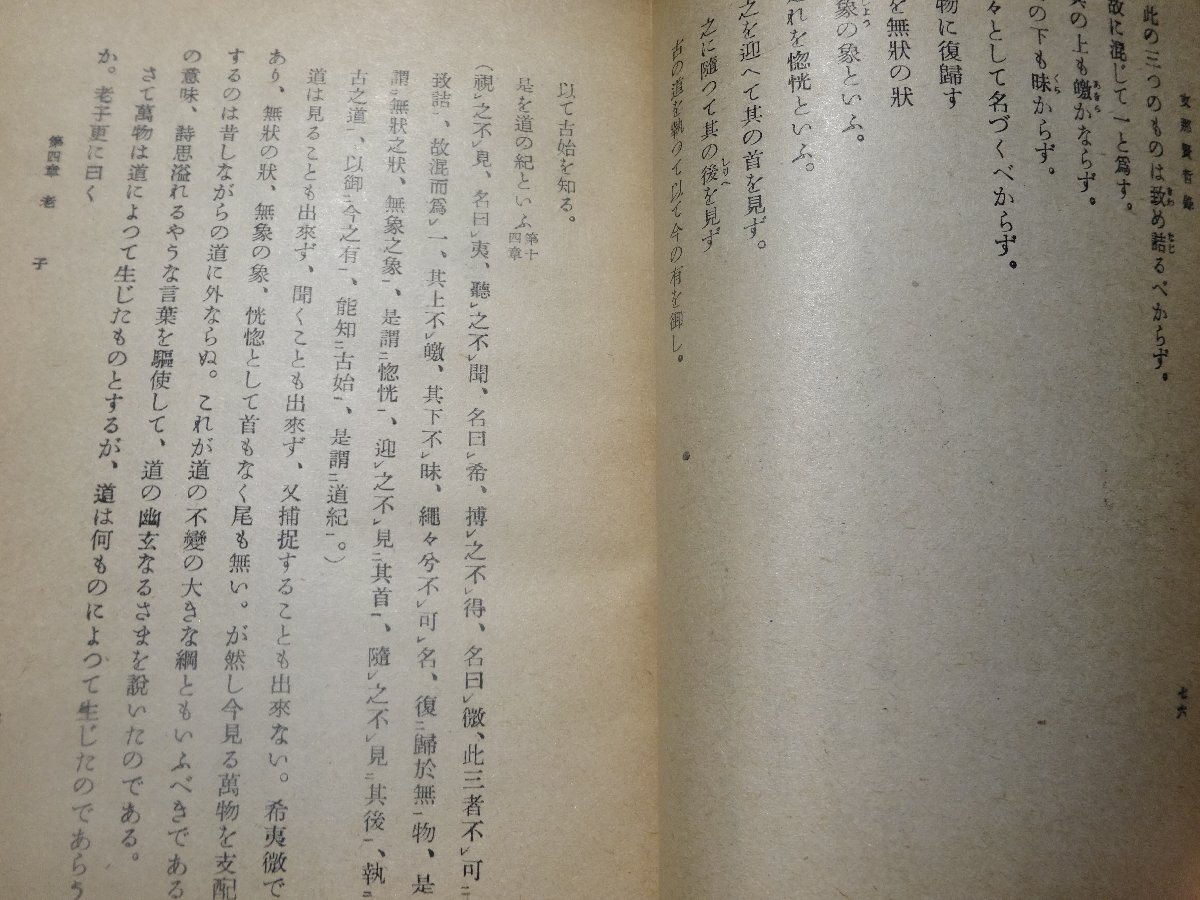 支那賢哲録
此の三つのものは致め詰るべからず。
故に混じて一と爲す。
其の上も皦かならず。
の下も昧からず。
々として名づくべからず。
物に復歸す
を無狀の狀
象の象といふ。
れを惚恍といふ。
之を迎へて其の首を見ず。
之に隨つて其の後を見ず
古の道を執つて以て今の有を御し。
七六
以て古始を知る。
是を道の紀といふ 第十四章
(視㆑之不㆑見、名曰㆑夷、聽㆑之不㆑聞、名曰㆑希、搏㆑之不㆑得、名曰㆑微、此三者不㆑可㆓
致詰㆒、故混而爲㆑一、其上不㆑皦、其下不㆑昧、繩々兮不㆑可㆑名、復㆓歸於無㆒物、是
謂㆓無狀之狀、無象之象㆒、是謂㆓惚恍㆒、迎㆑之不㆑見㆓其首㆒、隨㆑之不㆑見㆓其後㆒、執㆓
古之道㆒、以御㆓今之有㆒、能知㆓古始㆒、是謂㆓道紀㆒。)
道は見ることも出來ず、聞くことも出來ず、又捕捉することも出來ない。希夷微で
あり、無狀の狀、無象の象、恍惚として首もなく尾も無い。が然し今見る萬物を支配
するのは昔しながらの道に外ならぬ。これが道の不變の大きな綱ともいふべきである
の意味、詩思溢れるやうな言葉を驅使して、道の幽玄なるさまを說いたのである。
さて萬物は道によつて生じたものとするが、道は何ものによつて生じたのであらう
か。老子更に曰く
第四章 老子